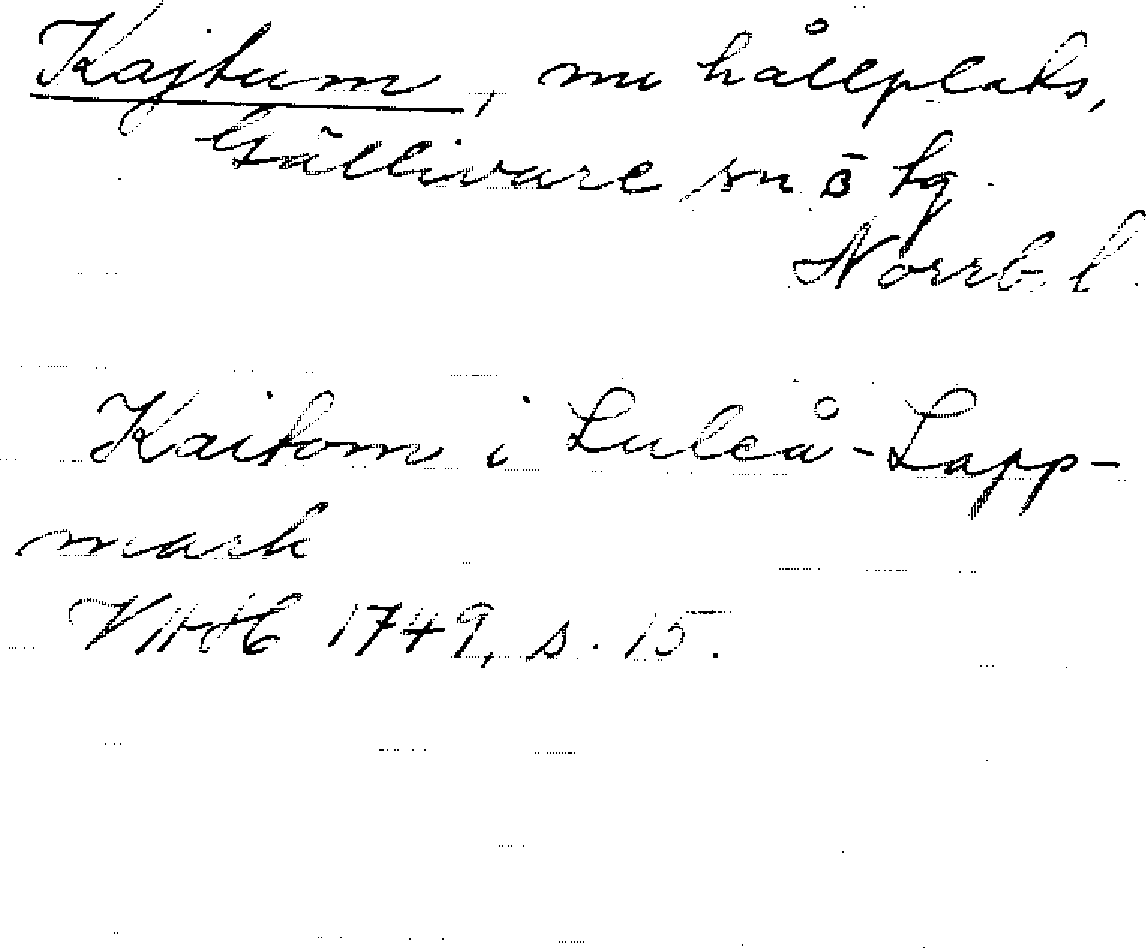 Kajtum, nu hållplats,
Gällivare sn o tg
Norrb. l.
Kaitom i Luleå-Lapp-
mark
VAH 1749, s. 15.